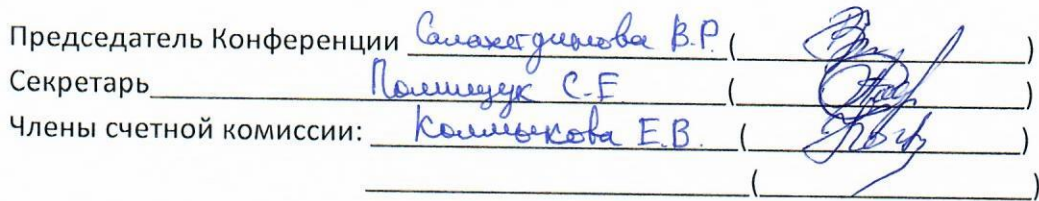 Председатель Конференции Салахетдинова В.Р. (
)
Секретарь Полищук С.Е. (
)
Члены счетной комиссии: Колмыкова Е.В. (
)
(
)